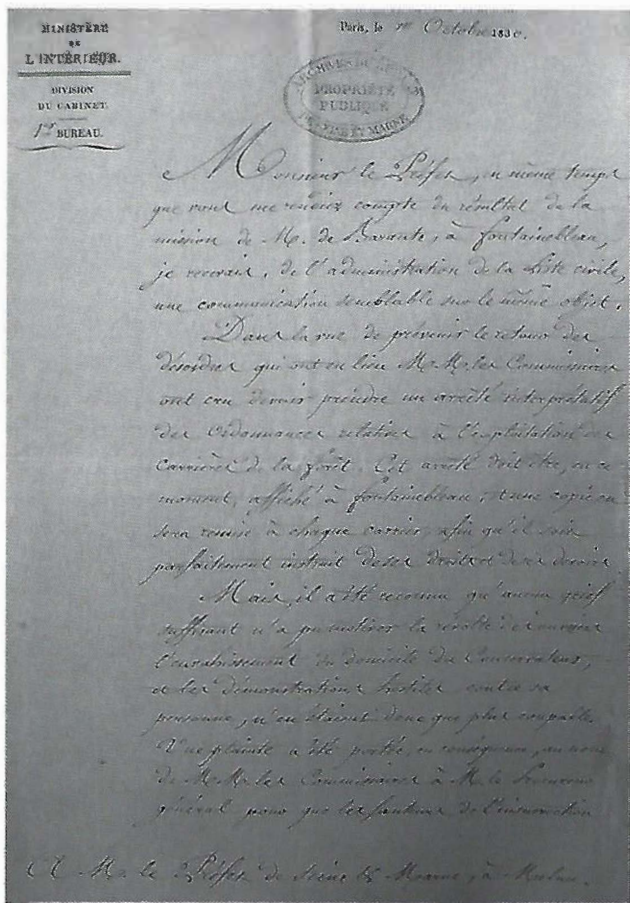 MINISTÈRE
DE
L'INTÉRIEUR.
DIVISION
DU CABINET.
1er BUREAU.
Paris, le 1er Octobre 1830.
ARCHIVES DE
PROPRIÉTÉ
PUBLIQUE
SEINE ET MARNE
Monsieur le Préfet, en même temps
que vous me rendiez compte du résultat de la
mission de M. de Barante, à fontainebleau,
je recevais, de l'administration de la Liste civile,
une communication semblable sur le même objet.
Dans la vue de prévenir le retour des
désordres qui ont eu lieu M.M. les Commissaires
ont cru devoir prendre un arrêté interprétatif
des Ordonnances relatives à l'exploitation des
Carrières de la forêt. Cet arrêté doit être, en ce
moment, affiché à fontainebleau, et une copie en
sera remise à chaque carrier, afin qu'il soit
parfaitement instruit de ses droits et de ses devoirs.
Mais, il a été reconnu qu'aucun grief
suffisant n'a pu motiver la révolte des ouvriers
l'envahissement du domicile du Conservateur,
et les démonstrations hostiles contre sa
personne, n'en étaient donc que plus coupables.
Une plainte a été portée, en conséquence, au nom
de M.M. les Commissaires à M. le Procureur
général pour que les fauteurs de l'insurrection
A M. le Préfet de Seine & Marne, à Melun.